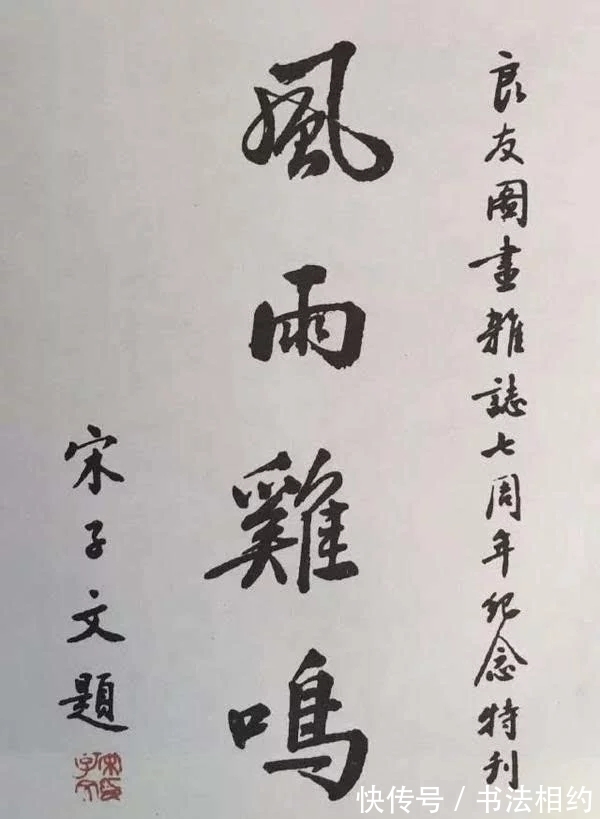 良友圖畫雜誌七周年紀念特刊
風雨雞鳴
宋子文題
快传号／书法相约